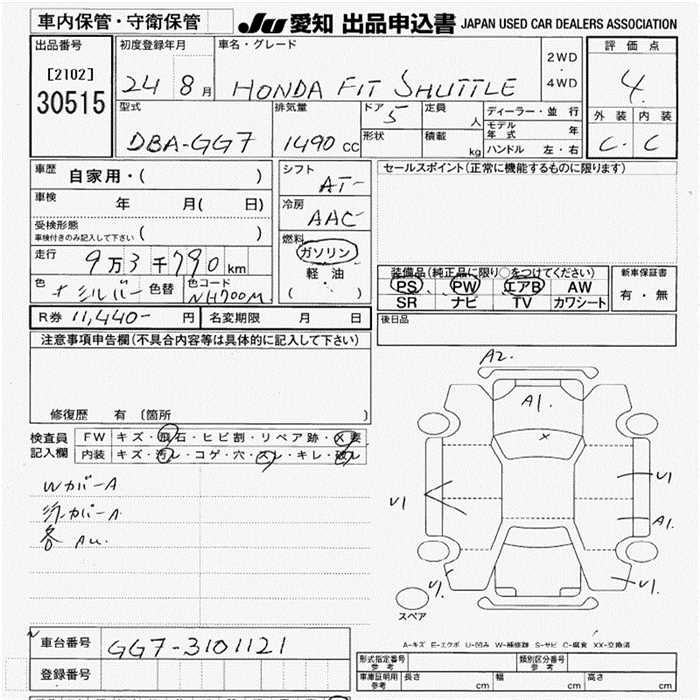 車内保管・守衛保管
JU 愛知 出品申込書 JAPAN USED CAR DEALERS ASSOCIATION
出品番号
[2102]
30515
初度登録年月
24 8 月
車名・グレード
HONDA FIT SHUTTLE
2WD
4WD
評価点
4
外装 内装
C C
型式
DBA-GG7
排気量
1490 cc
ドア 5
形状
定員 人
積載 kg
ディーラー・並行
モデル年式 年
ハンドル 左・右
車歴 自家用・( )
車検 年 月( 日)
受検形態
車検付きのみ記入して下さい ( )
走行 9万3千790km
色 シルバー 色替 色コード NH700M
シフト AT
冷房 AAC
燃料
ガソリン
軽油
( ・ )
セールスポイント(正常に機能するものに限ります)
装備品(純正品に限り○をつけてください)
PS PW エアB AW
SR ナビ TV カワシート
新車保証書
有・無
後日品
R券 11,440- 円 名変期限 月 日
注意事項申告欄(不具合内容等は具体的に記入して下さい)
修復歴 有 〔箇所 〕
検査員
記入欄
FW キズ・飛石・ヒビ割・リペア跡・×要
内装 キズ・汚レ・コゲ・穴・スレ・キレ・破レ
WカバーA
カバーA
各 AU.
A2.
A1.
×
U1
U1
A1.
U1.
U1.
スペア
A-キズ E-エクボ U-凹み W-補修跡 S-サビ C-腐食 XX-交換済
車台番号 GG7-3101121
登録番号
形式指定番号 参考
類別区分番号 参考
車庫証明用 参考 長さ cm 幅 cm 高さ cm